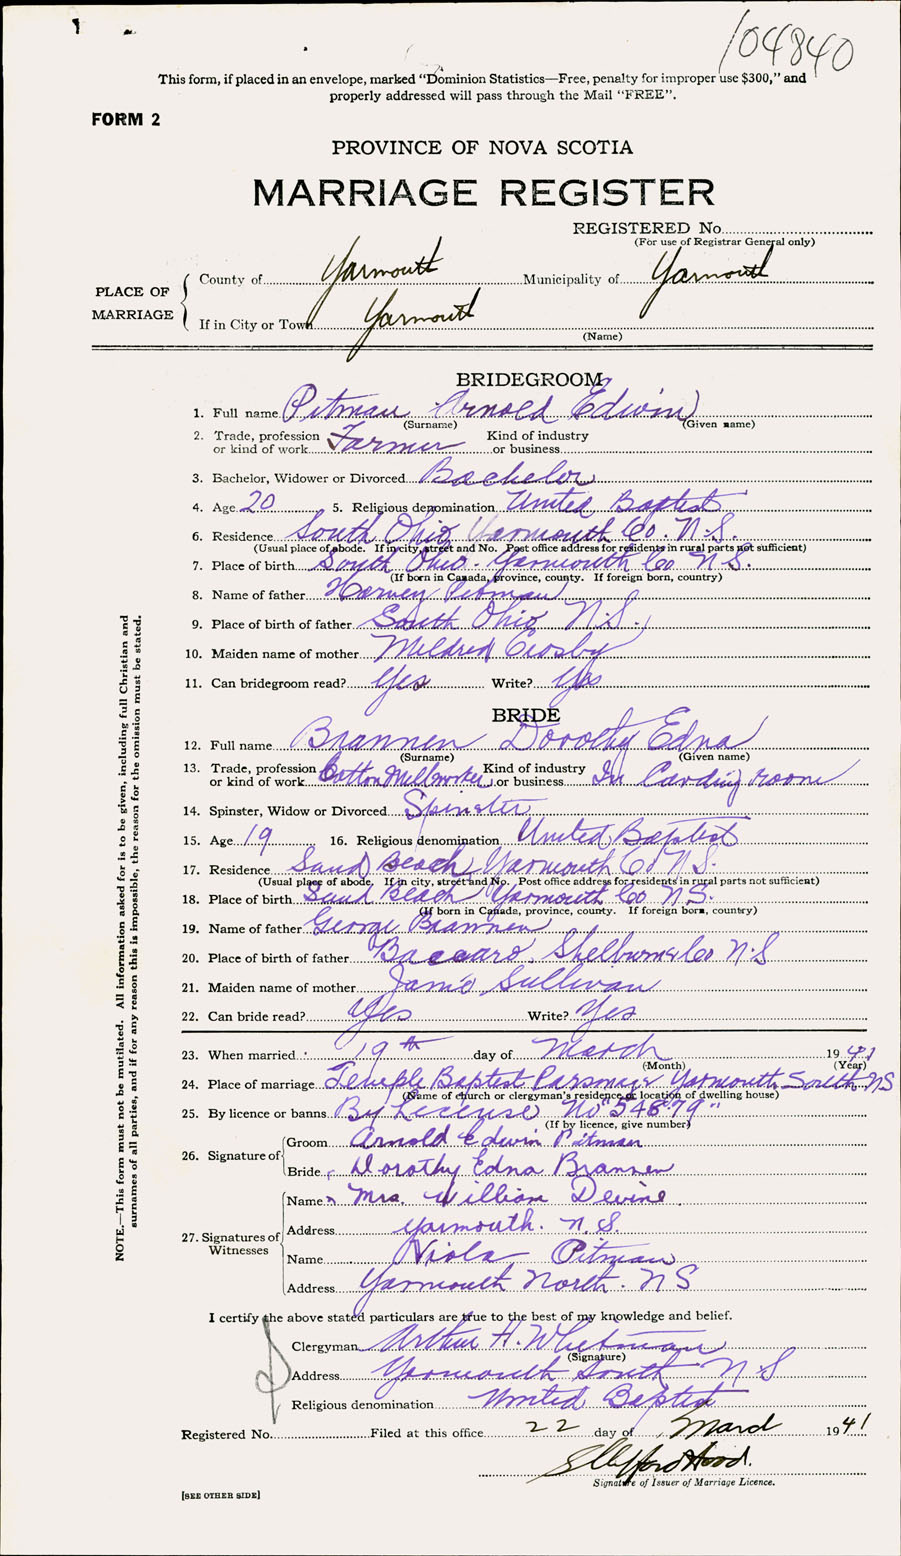 104840
This form, if placed in an envelope, marked "Dominion Statistics—Free, penalty for improper use $300," and
properly addressed will pass through the Mail "FREE".
FORM 2
PROVINCE OF NOVA SCOTIA
MARRIAGE REGISTER
REGISTERED No.
(For use of Registrar General only)
PLACE OF MARRIAGE
County of Yarmouth Municipality of Yarmouth
If in City or Town Yarmouth
(Name)
BRIDEGROOM
1. Full name Pitman Arnold Edwin
(Surname) (Given name)
2. Trade, profession or kind of work Farmer Kind of industry or business
3. Bachelor, Widower or Divorced Bachelor
4. Age 20 5. Religious denomination United Baptist
6. Residence South Ohio Yarmouth Co. N.S.
(Usual place of abode. If in city, street and No. Post office address for residents in rural parts not sufficient)
7. Place of birth South Ohio. Yarmouth Co N.S.
(If born in Canada, province, county. If foreign born, country)
8. Name of father Harvey Pitman
9. Place of birth of father South Ohio N.S.
10. Maiden name of mother Mildred Crosby
11. Can bridegroom read? Yes Write? Yes
BRIDE
12. Full name Brannen Dorothy Edna
(Surname) (Given name)
13. Trade, profession or kind of work Cotton Millworker Kind of industry or business In Carding room
14. Spinster, Widow or Divorced Spinster
15. Age 19 16. Religious denomination United Baptist
17. Residence Sand Beach Yarmouth Co N.S.
(Usual place of abode. If in city, street and No. Post office address for residents in rural parts not sufficient)
18. Place of birth Sand Beach Yarmouth Co N.S.
(If born in Canada, province, county. If foreign born, country)
19. Name of father George Brannen
20. Place of birth of father Baccaro, Shelburne Co N.S
21. Maiden name of mother Janie Sullivan
22. Can bride read? Yes Write? Yes
23. When married 19th day of March 1941
(Month) (Year)
24. Place of marriage Temple Baptist Parsonage Yarmouth South NS
(Name of church or clergyman's residence or location of dwelling house)
25. By licence or banns By License No "54879"
(If by licence, give number)
26. Signature of
Groom Arnold Edwin Pitman
Bride Dorothy Edna Brannen
27. Signatures of Witnesses
Name Mrs. William Devine
Address Yarmouth. N.S.
Name Viola Pitman
Address Yarmouth North. NS
I certify the above stated particulars are true to the best of my knowledge and belief.
Clergyman Arthur H. Whitman
(Signature)
Address Yarmouth South N S
Religious denomination United Baptist
Registered No. Filed at this office 22 day of March 1941
Signature of Issuer of Marriage Licence.
[SEE OTHER SIDE]
NOTE.—This form must not be mutilated. All information asked for is to be given, including full Christian and
surnames of all parties, and if for any reason this is impossible, the reason for the omission must be stated.